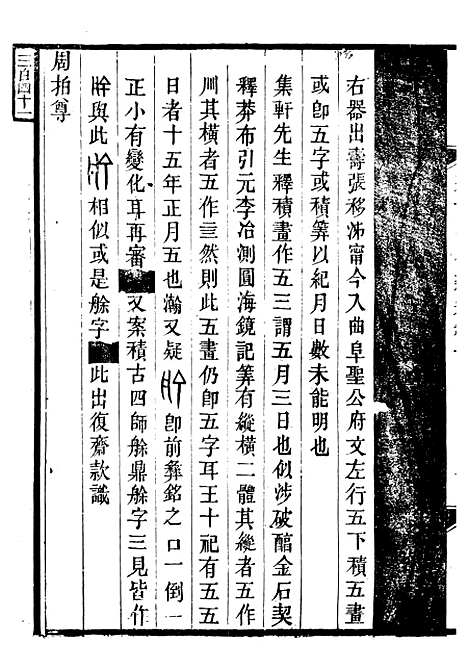 右器出壽張移濟甯今入曲阜聖公府文左行五下積五畫
或即五字或積筭以紀月日數未能明也
集軒先生釋積畫作五三謂五月三日也似涉破醕金石契
釋莽布引元李冶測圓海鏡記筭有縱橫二體其縱者五作
其橫者五作言然則此五畫仍即五字耳王十祀有五五
日者十五年正月五也瀚又疑即前彝銘之口一倒一
正小有變化耳再審又案積古四師艅鼎艅字三見皆作
與此相似或是艅字此出復齋款識
周拍尊
三百四十一